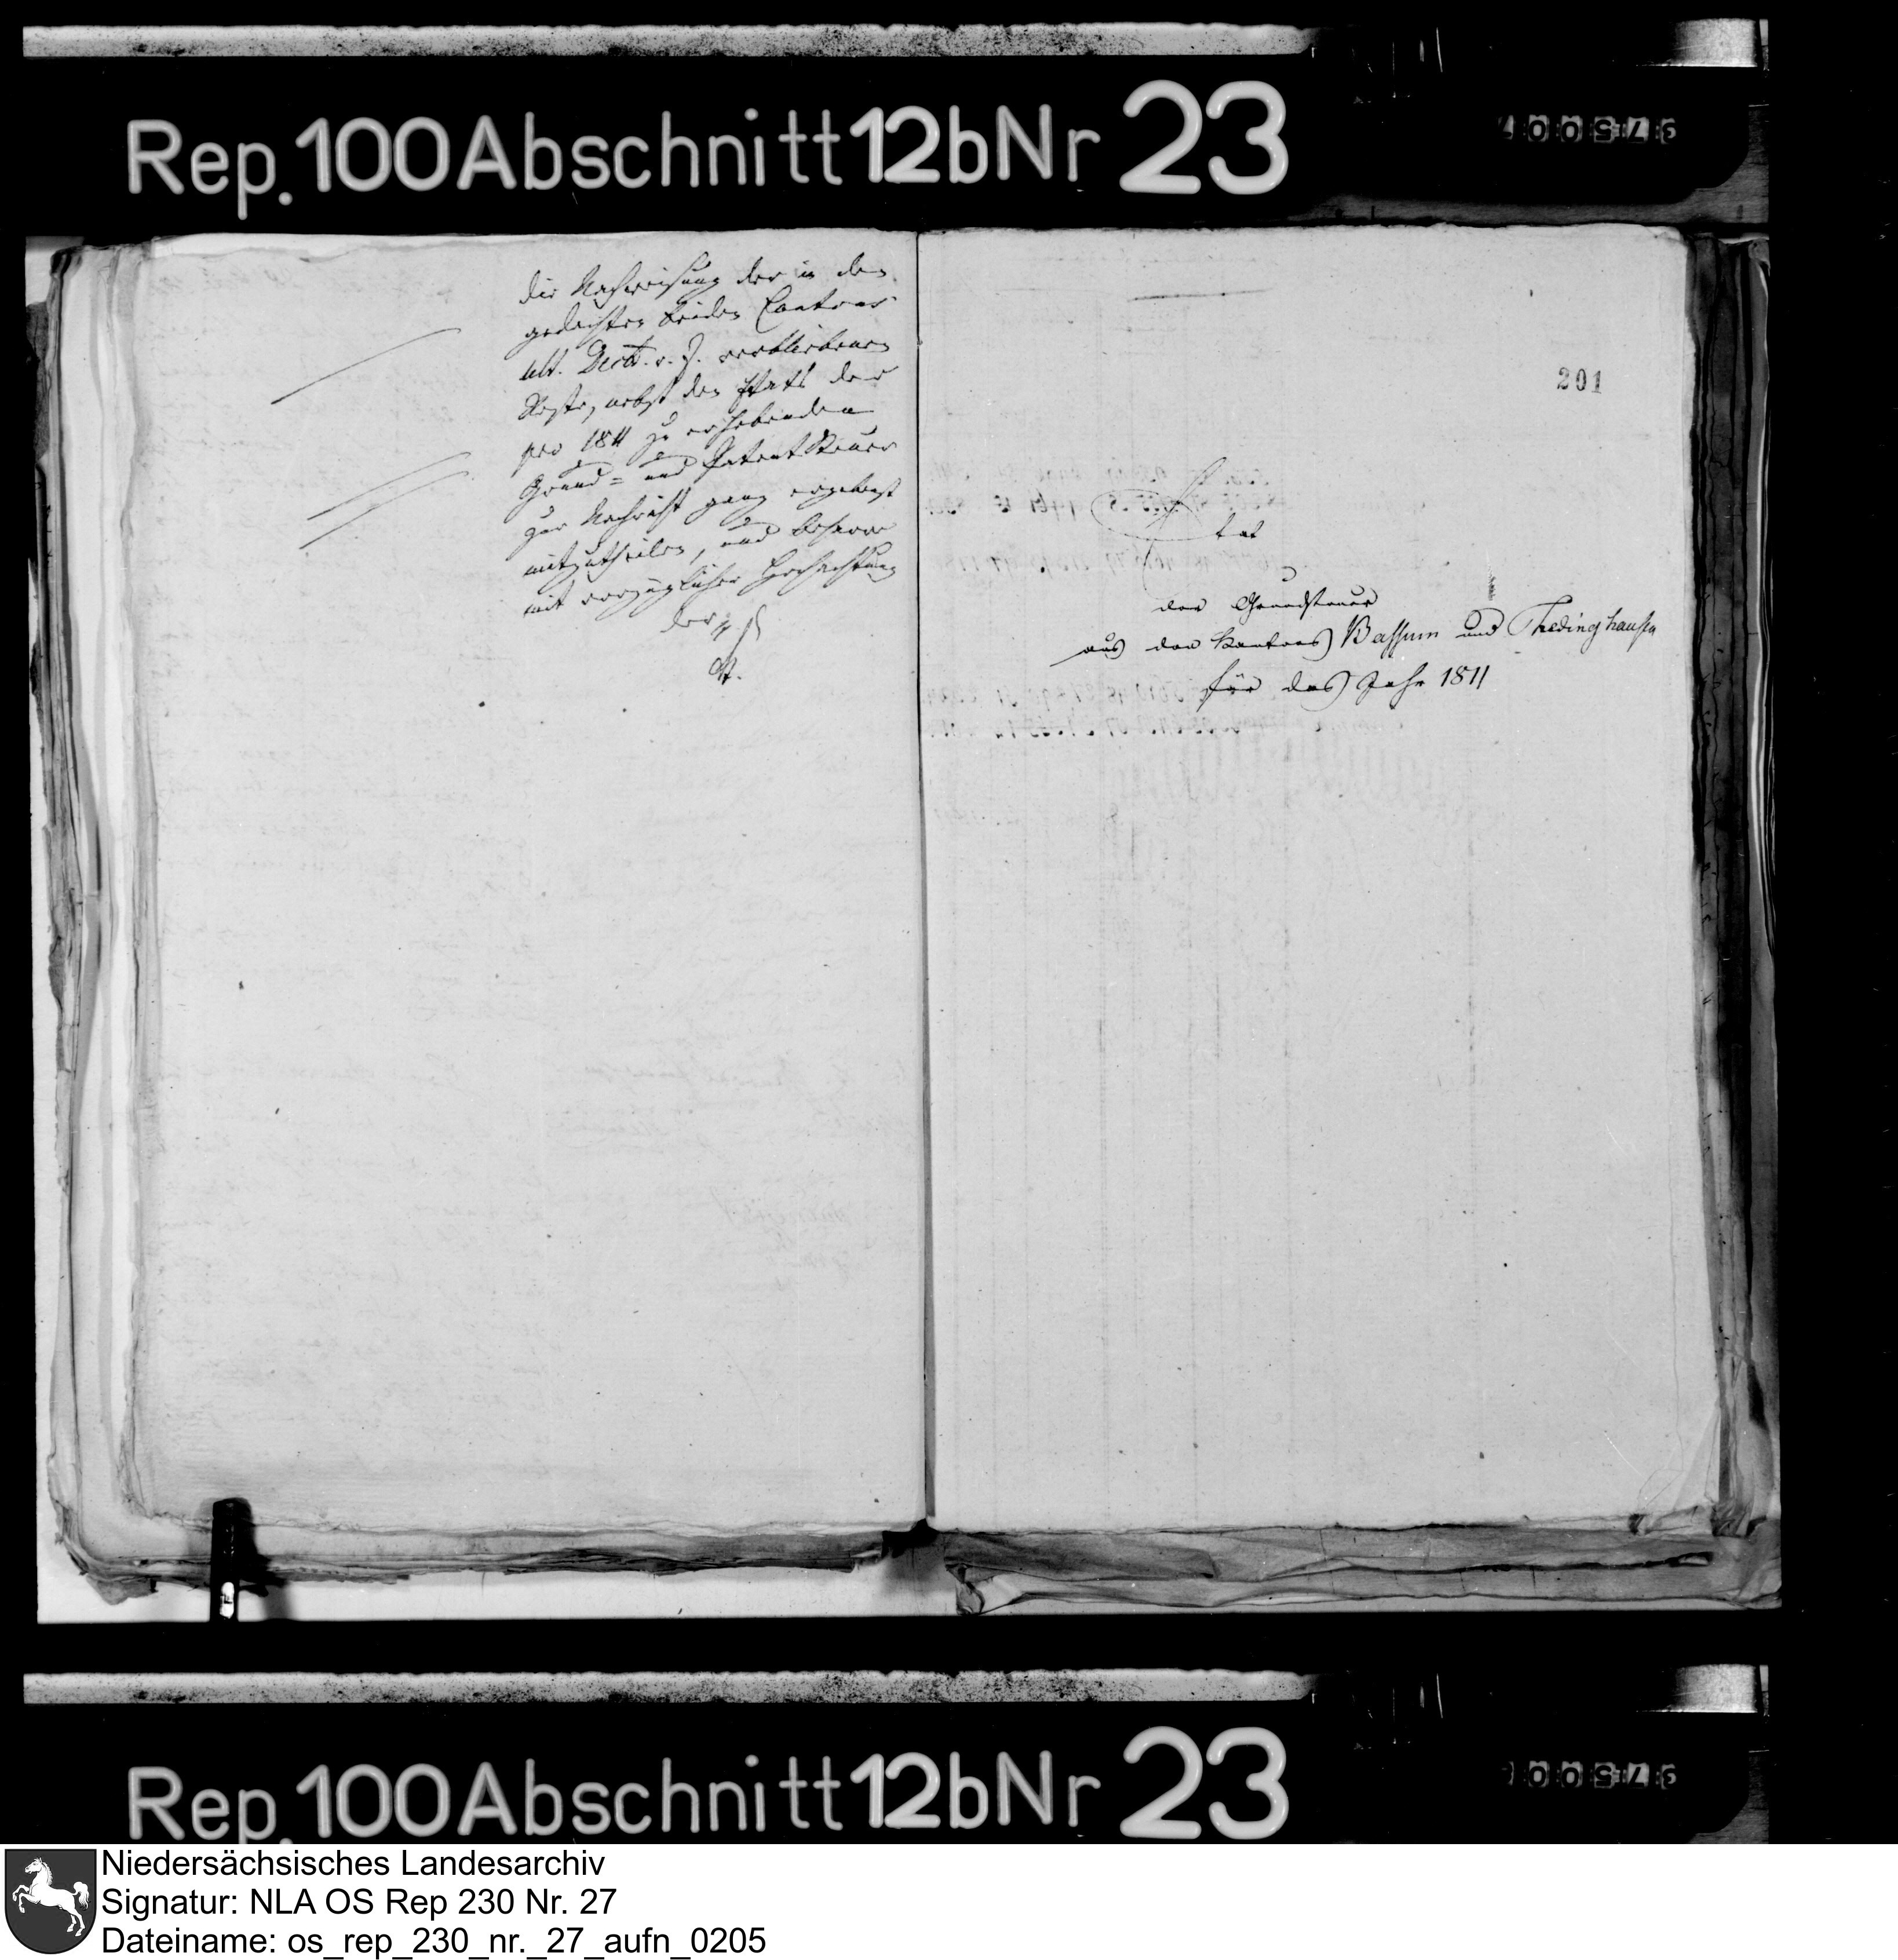 Rep. 100 Abschnitt 12b Nr 23
die Nachweisung der in den
gedachten beiden Cantons
ult. Decbr. v. J. verbliebenen
Reste, nebst den Etats der
pro 1811 zu erhebenden
Grund= und Patent Steuer
zur Nachricht ganz ergebenst
mitzutheilen, und beharre
mit vorzüglicher Hochachtung
der
201
Etat
der Grundsteuer
aus den Kantons Bassum und Thedinghausen
für das Jahr 1811
Rep. 100 Abschnitt 12b Nr 23
Niedersächsisches Landesarchiv
Signatur: NLA OS Rep 230 Nr. 27
Dateiname: os_rep_230_nr._27_aufn_0205